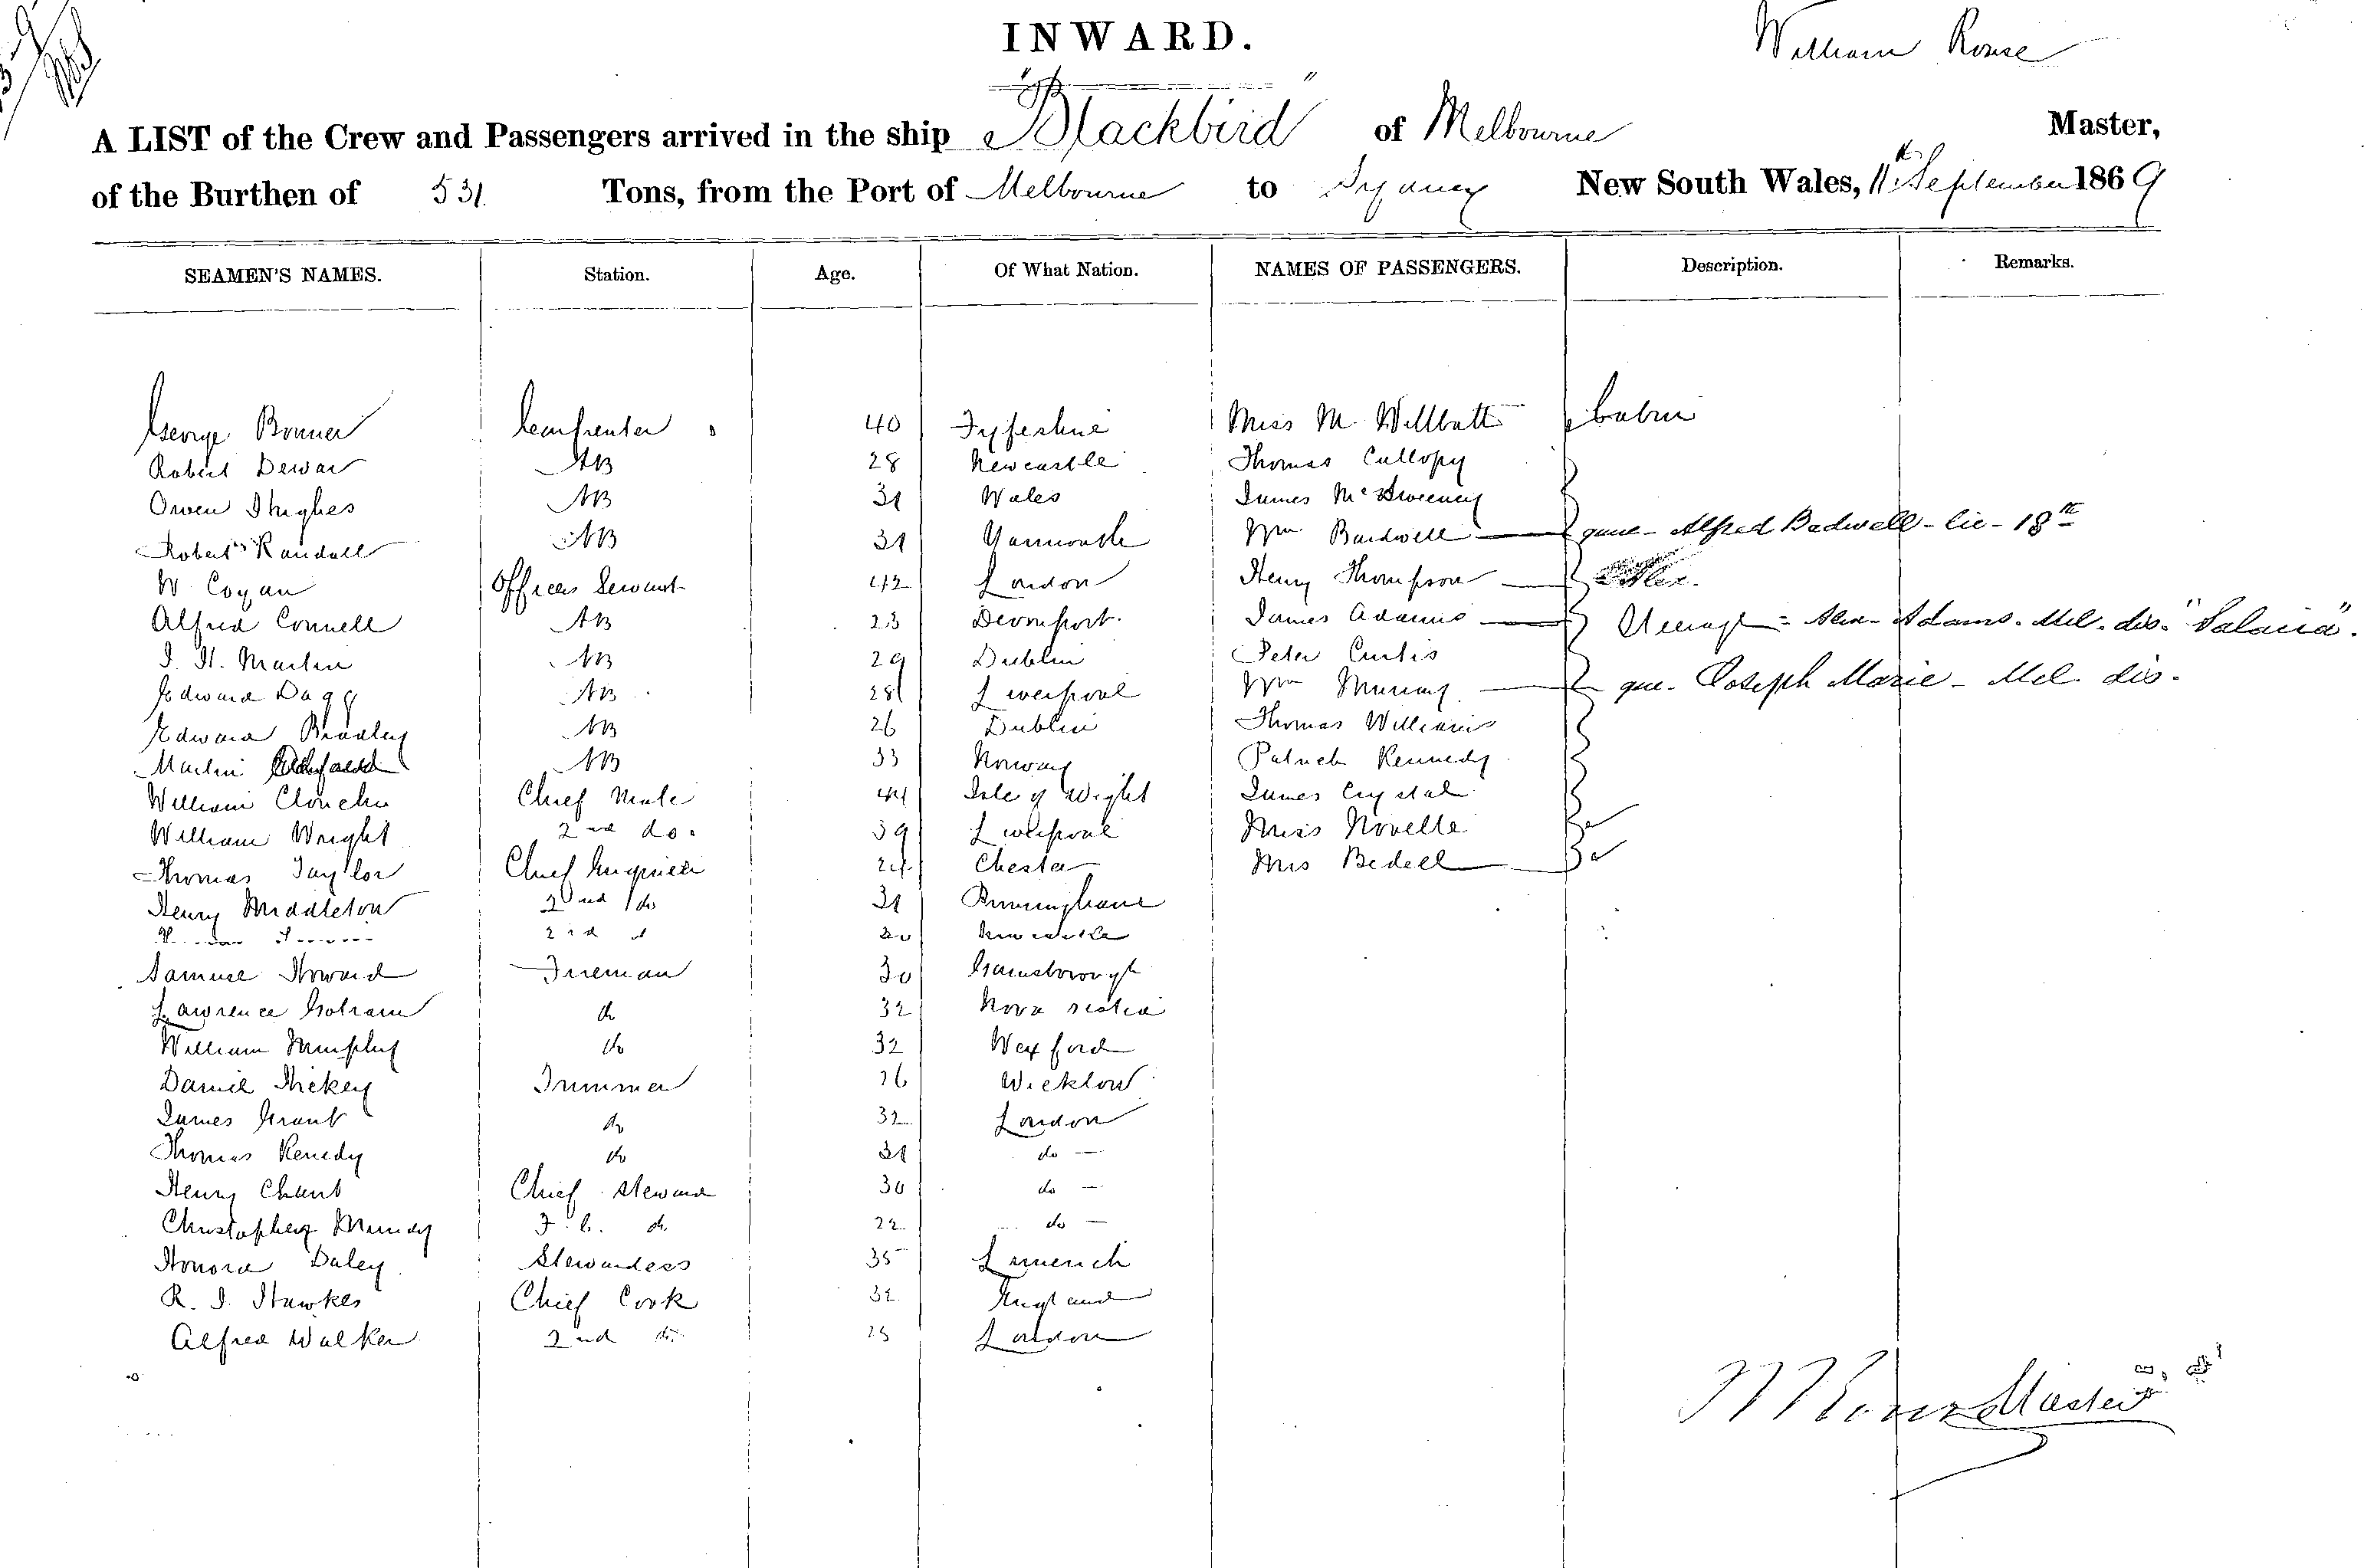 INWARD.
William Rouse
A LIST of the Crew and Passengers arrived in the ship "Blackbird" of Melbourne Master,
of the Burthen of 531 Tons, from the Port of Melbourne to Sydney New South Wales, 11th September 1869
SEAMEN'S NAMES. Station. Age. Of What Nation. NAMES OF PASSENGERS. Description. Remarks.
George Bonner Carpenter 40 Fyfeshire Miss M. Willbatt Cabin
Robert Dewar AB 28 Newcastle Thomas Cullopy
Owen Hughes AB 31 Wales James McSweeney
Robert Randall AB 31 Yarmouth Wm Bardwell Alfred Badwell - lic - 18th
W Cogan Officers Servant 42 London Henry Thompson
Alfred Connell AB 23 Devonport James Adams Alex Adams. Mel. dis. "Salacia".
J. H. Martin AB 29 Dublin Peter Curtis
Edward Dagg AB 28 Liverpool Wm Murray que. Joseph Marie - Mel. dis.
Edward Bradley AB 26 Dublin Thomas Williams
Martin AB 33 Norway Patrick Kennedy
William Clouchu Chief Mate 44 Isle of Wight James Crystal
William Wright 2nd do. 39 Liverpool Miss Novelle
Thomas Taylor Chief Engineer 24 Chester Mrs Bedell
Henry Middleton 2nd do 31 Birmingham
Newcastle
Samuel Howard Fireman 30 Gainsborough
Lawrence Gotram do 32 Nova Scotia
William Murphy do 32 Wexford
Daniel Hickey Trimmer 26 Wicklow
James Grant do 32 London
Thomas Kenedy do 31 do —
Henry Chant Chief Steward 30 do —
Christopher Munday F. C. do. 22 do —
Honora Daley Stewardess 35 Limerick
R. J. Hawkes Chief Cook 32 England
Alfred Walker 2nd do 25 London
W Rouse Master